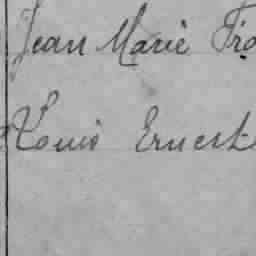 Jean Marie Fro
Louis Ernest